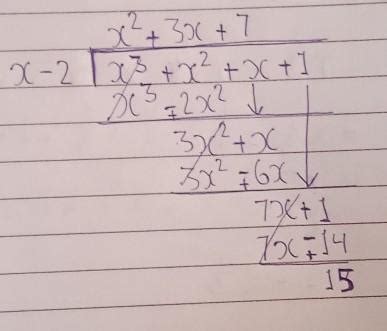 x² + 3x + 7
x - 2 | x³ + x² + x + 1
x³ - 2x²
3x² + x
3x² - 6x
7x + 1
7x - 14
15